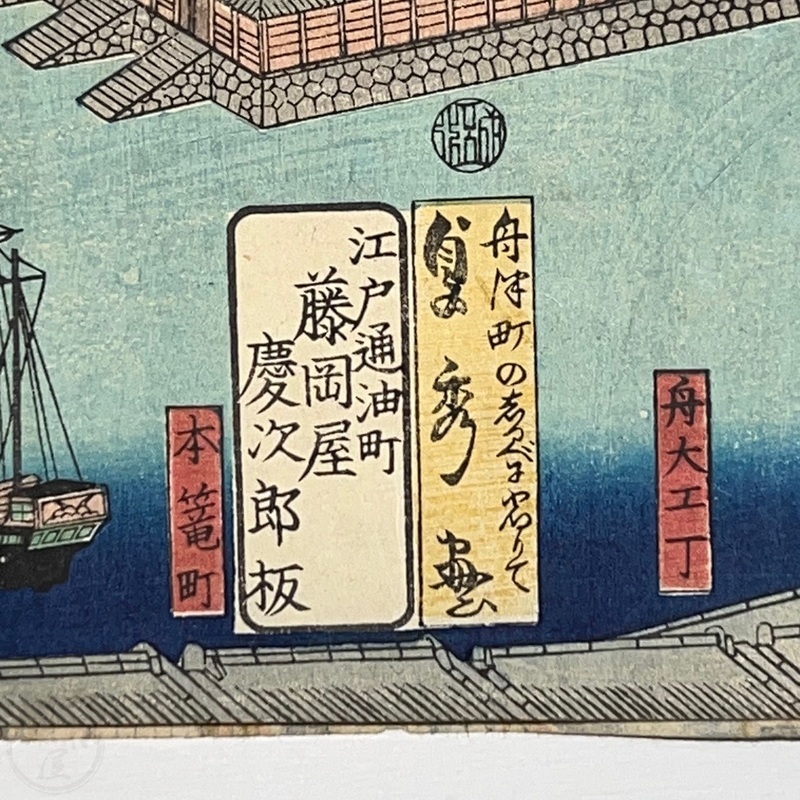 舟大工丁
舟津町の
貞秀画
江戸通油町
藤岡屋
慶次郎板
本篭町